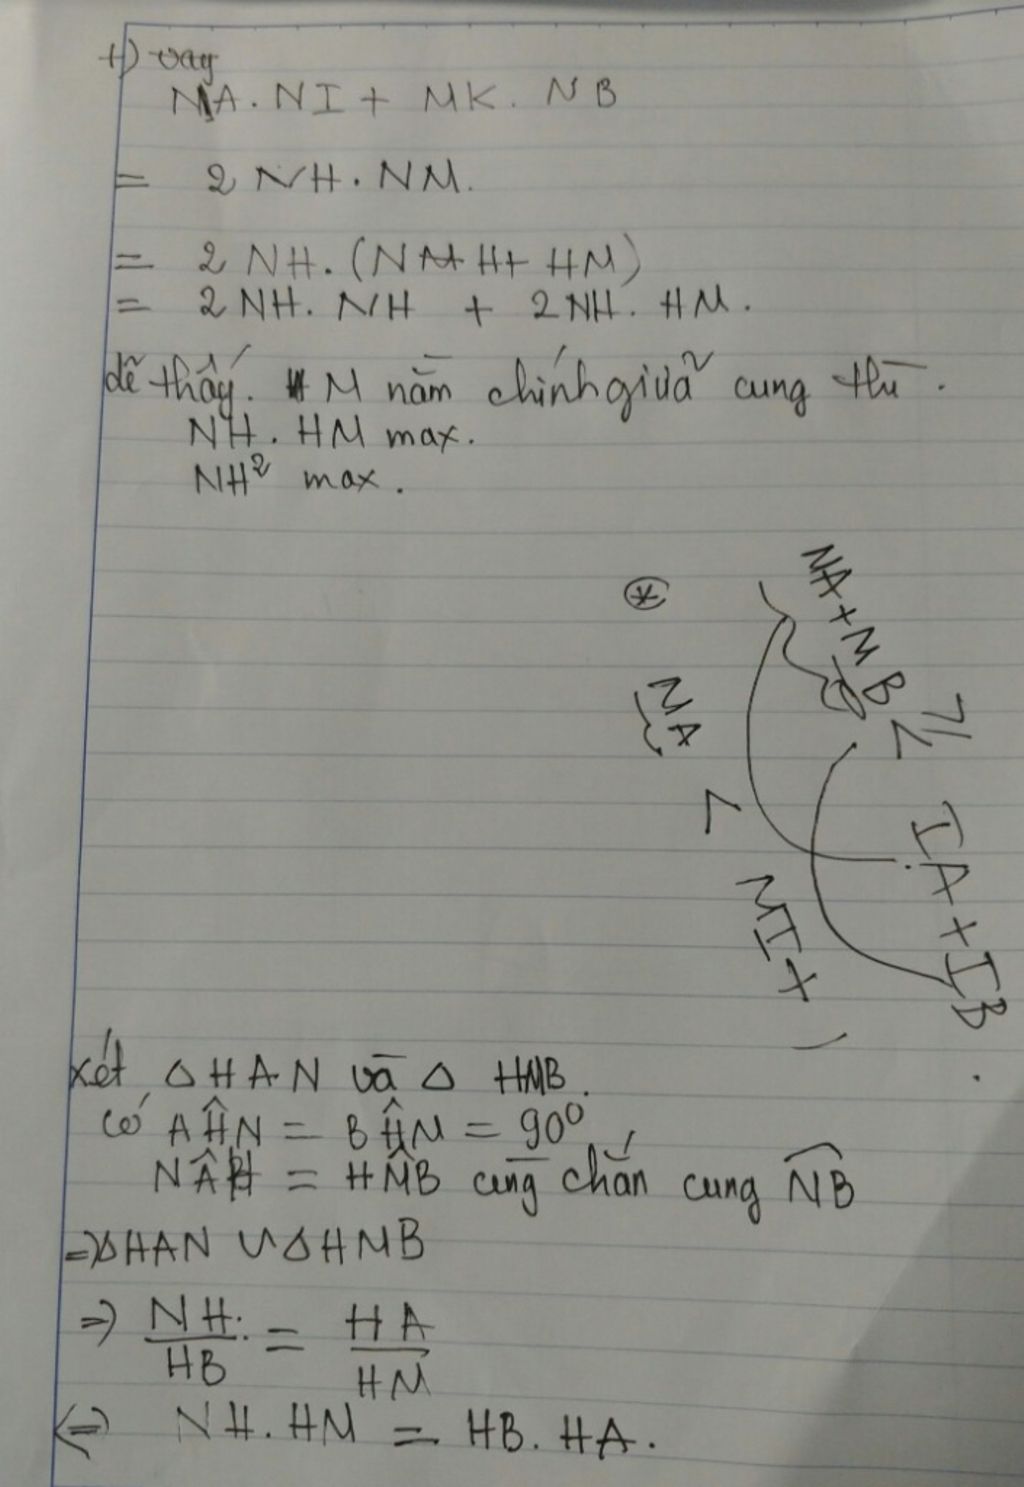 +) vậy
NA . NI + MK . NB
= 2 NH . NM.
= 2 NH . (NH + HM)
= 2 NH . NH + 2 NH . HM .
dễ thấy . M nằm chính giữa cung thì .
NH . HM max .
NH² max .
NA + MB
≥
IA + IB
*
MA
<
MI +
xét △ HAN và △ HMB .
có AĤN = BĤM = 90⁰
NÂH = HM̂B cùng chắn cung NB
=> △HAN ∽ △HMB
=> NH / HB = HA / HM
<=> NH . HM = HB . HA .